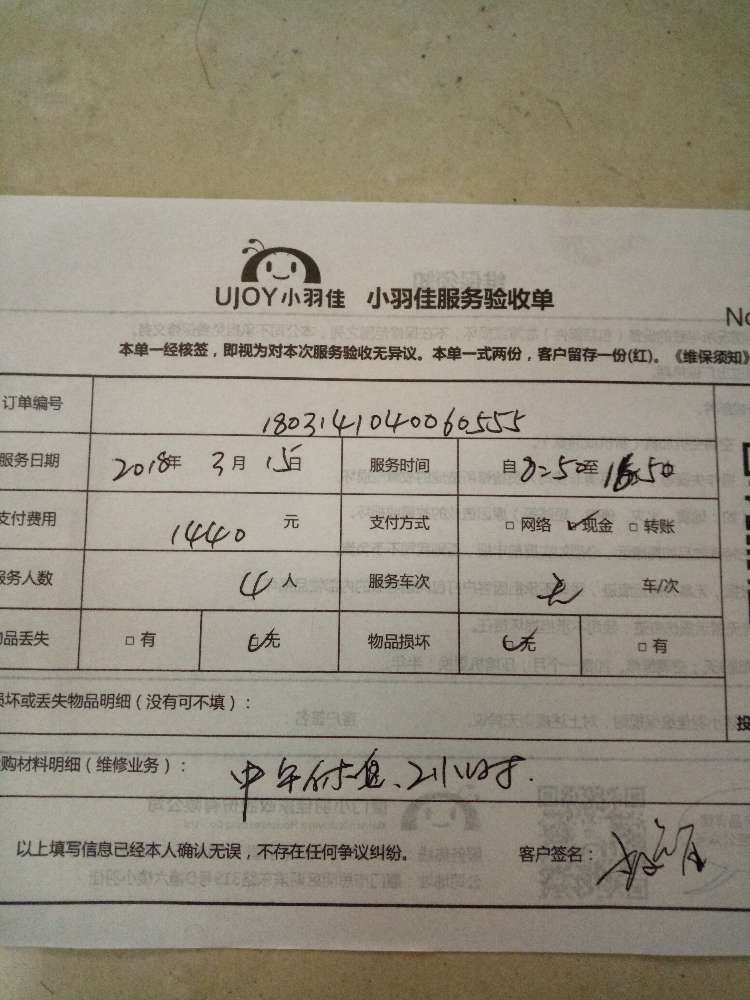 UJOY小羽佳 小羽佳服务验收单
No
本单一经核签，即视为对本次服务验收无异议。本单一式两份，客户留存一份(红)。《维保须知》
订单编号 1803141040060555
服务日期 2018年 3月 15日 服务时间 自8:50至18:50
支付费用 1440 元 支付方式 □ 网络 ☑现金 □ 转账
服务人数 4 人 服务车次 无 车/次
物品丢失 □ 有 ☑无 物品损坏 ☑无 □ 有
损坏或丢失物品明细（没有可不填）：
购材料明细（维修业务）： 中午休息、2小时.
以上填写信息已经本人确认无误，不存在任何争议纠纷。 客户签名：